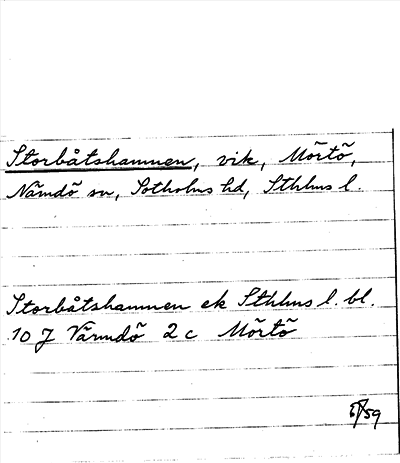 Storbåtshamnen, vik, Mörtö,
Nämdö sn, Sotholms hd, Sthlms l.
Storbåtshamnen ek Sthlms l. bl.
10 J Värmdö 2 c Mörtö